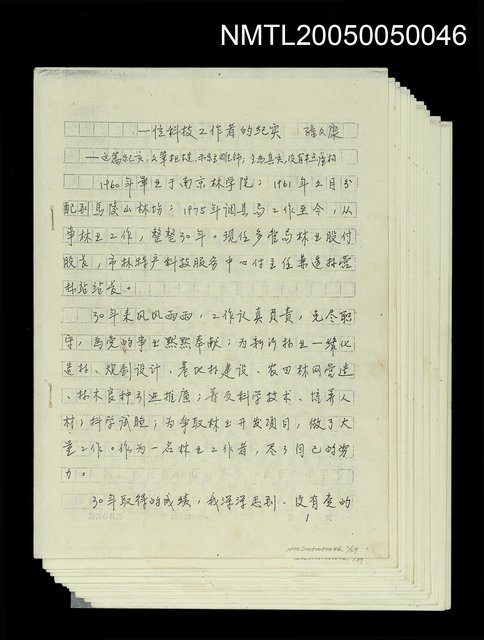 NMTL20050050046
一位科技工作者的纪实
1960年畢业于南京林学院；1961年2月分
配到馬陵山林场；1975年调县局工作至今，从
事林业工作，整整30年。现任多管局林业股付
股长，市林特产科技服务中心付主任兼造林营
林站站长。
30年来风风雨雨，工作认真负责，克尽职
守，爲党的事业默默奉献；为新沂林业一绿化
造林、规划设计、基地林建设、农田林网营造
、林木良种引进推廣；普及科学技术、培养人
材；科学试验；为争取林业开发项目，做了大
量工作。作为一名林业工作者，尽了自己的努
力。
30年取得的成绩，我深深感到，没有党的
1
NMTL20050050046, 1/59